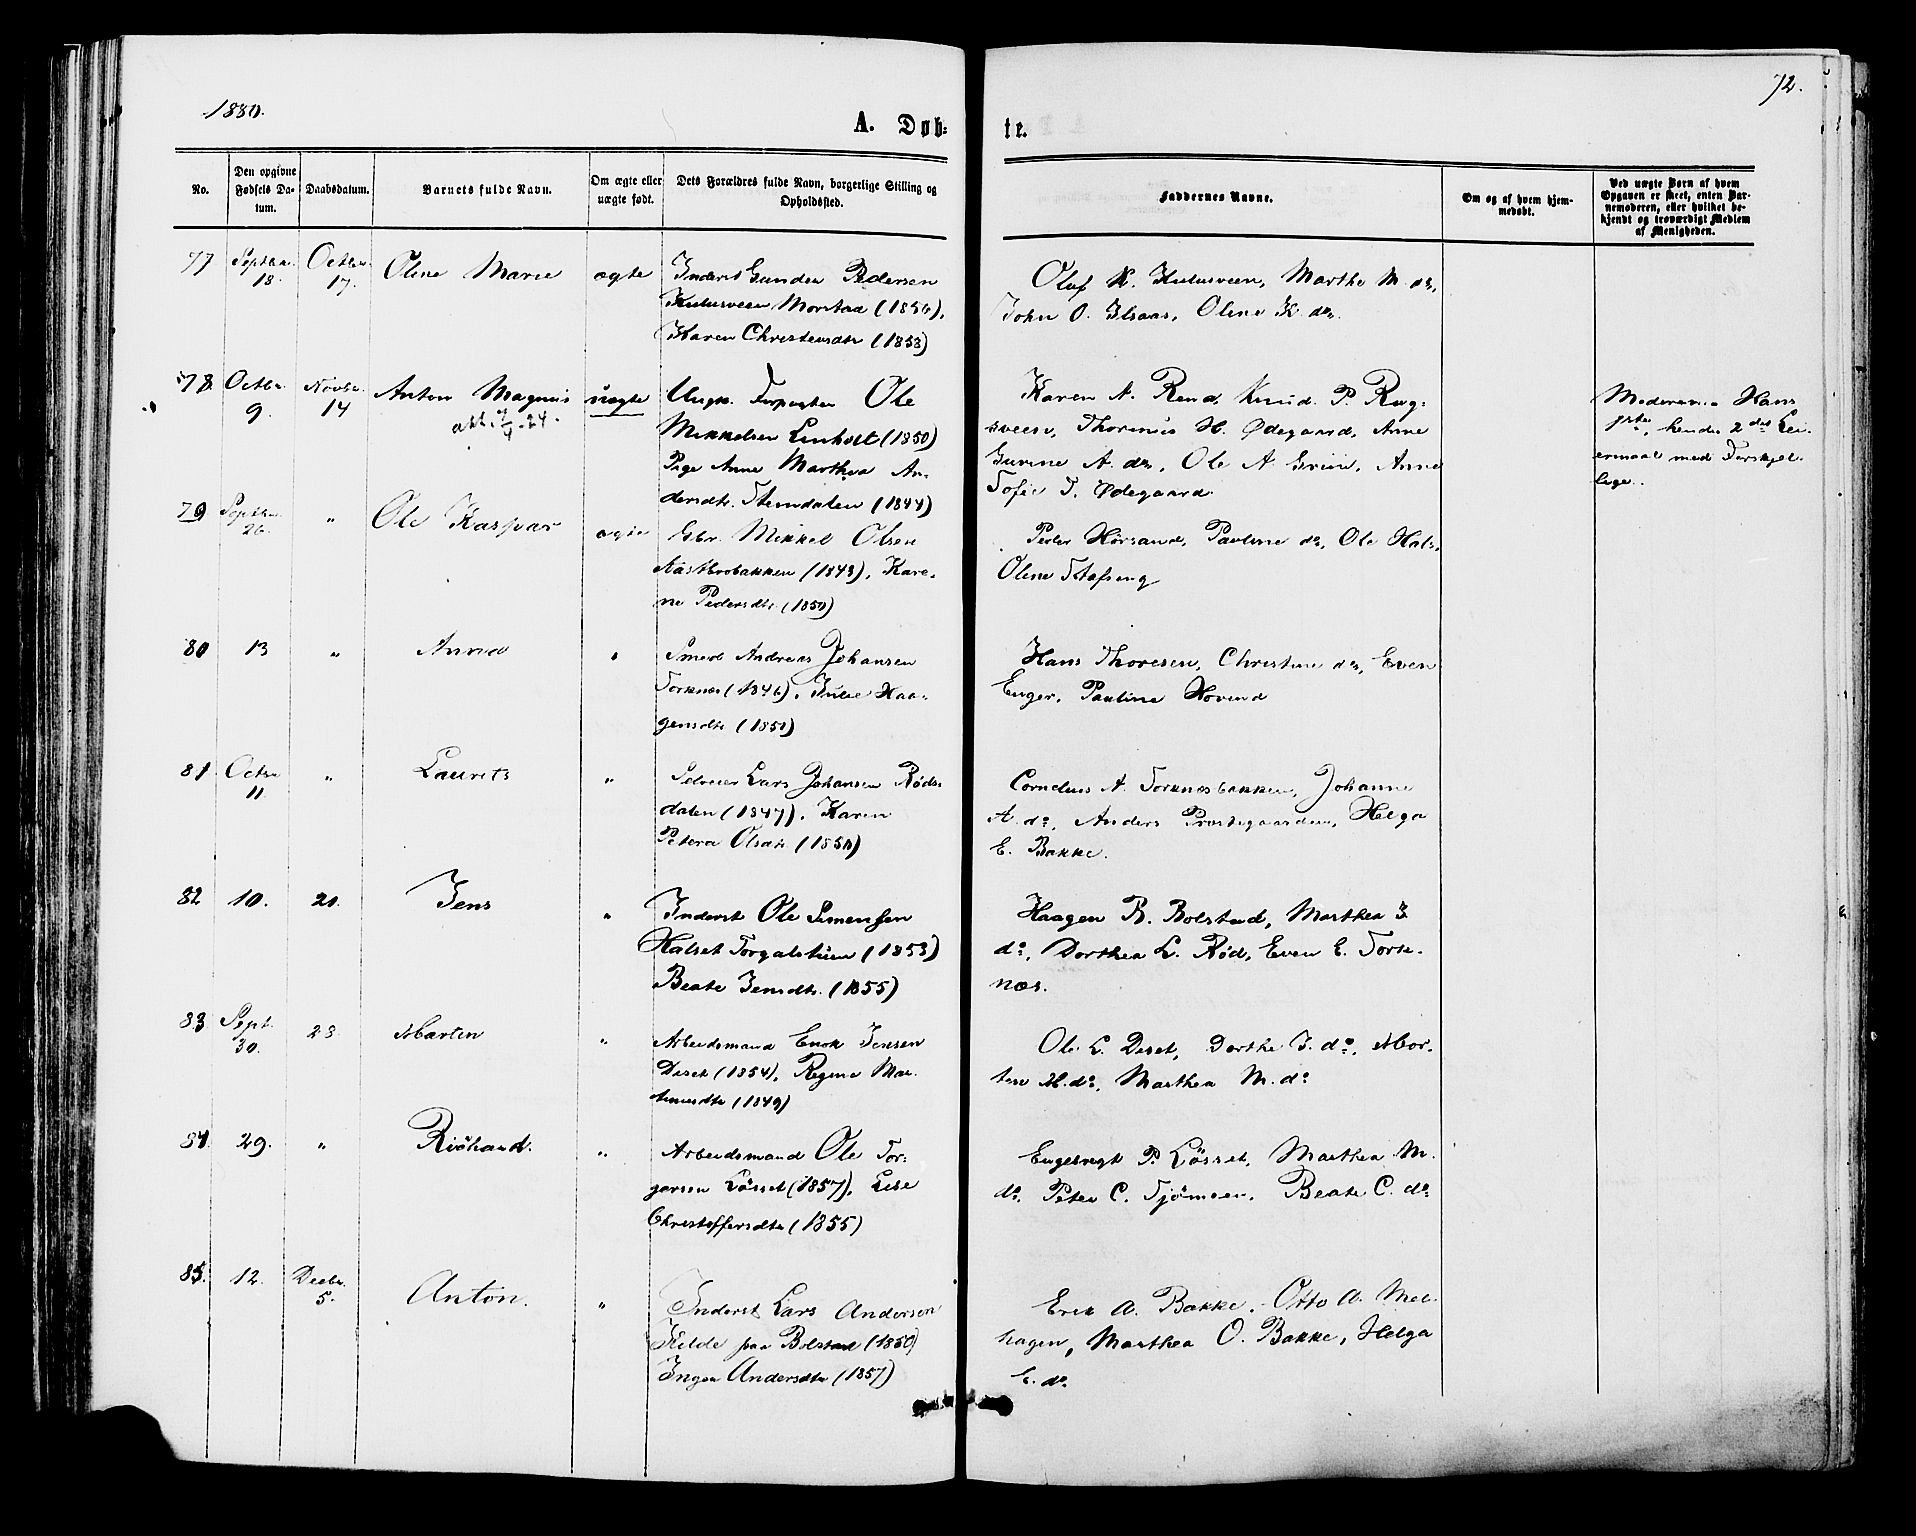 1880.
72.
A. Døb-
te.
No.
Den opgivne Fødsels Da-tum.
Daabsdatum.
Barnets fulde Navn.
Om ægte eller uægte født.
Dets Forældres fulde Navn, borgerlige Stilling og Opholdssted.
Faddernes Navne.
Om og af hvem hjem-medøbt.
Ved uægte Børn af hvem Opgaven er skeet, enten Bar-nemoderen, eller hvilket be-kjendt og troværdigt Medlem af Menigheden.
77
Septbr. 18.
Octbr. 17.
Oline Marie
ægte
Inderst Gunder Pedersen
Morstad (1856),
Karen Christensdtr (1858)
Oluf K. Martha M. do,
John O. Olene K. do.
78
Octbr. 9.
Novbr. 14
Anton Magnus
att. 7/4-24.
uægte
Ungk. Ole
Mikkelsen Linholt (1850)
Pige Anne Marthea An-
dersdtr. Stemdalen (1844)
Karen A. Rend, Knud P. Rug-
sveen, Thorinus H. Ødegaard, Anne
Gurine A. do, Ole A. Anne
Sofie T. Ødegaard.
Moderen. Hans
1ste, hendes 2det Lei-
ermaal med Forskjel-
lige.
79
Septbr. 26.
"
Ole Kaspar
ægte
Gbr. Mikkel Olsen
(1843), Kare-
ne Pedersdtr. (1850)
Peder Horsand, Pauline do, Ole Hals,
Oline Stafseng
80
13
"
Anna
"
Smed Andreas Johansen
Torknes (1846), Julie Haa-
gensdtr (1850)
Hans Thoresen, Christine do, Even
Enger, Pauline Hovind
81
Octbr. 11.
"
Laurits
"
Selveier Lars Johansen Røds-
dalen (1847), Karen
Petera Olsdtr. (1850)
Cornelius A. Torknesbakken, Johanne
A. do, Anders Præstegaarden, Helga
E. Bakke.
82
10.
21.
Jens
"
Inderst Ole Simensen
Halset Torgalstuen (1853)
Beate Jensdtr. (1855)
Haagen B. Bolstad, Marthea J.
do, Dorthea L. Rød, Even E. Tork-
nes.
83
Sept. 30.
28.
Marten
"
Arbeidsmand Enok Jensen
Deset (1854), Regine Mar-
tinusdtr (1849)
Ole L. Deset, Dorthe J. do, Mor-
ten M. do, Marthea M. do
84.
29.
"
Richard.
"
Arbeidsmand Ole Tor-
gersen Løsset (1857), Lise
Christoffersdtr (1855)
Engebregt P. Løsset, Marthea M.
do, Peter C. Tjømoen, Beate C. do
85.
12.
Decbr. 5.
Anton.
"
Inderst Lars Andersen
Kilde paa Bolstad (1850)
Ingen Andersdtr (1857)
Erik A. Bakke, Otto A. Mel-
hagen, Marthea O. Bakke, Helga
E. do